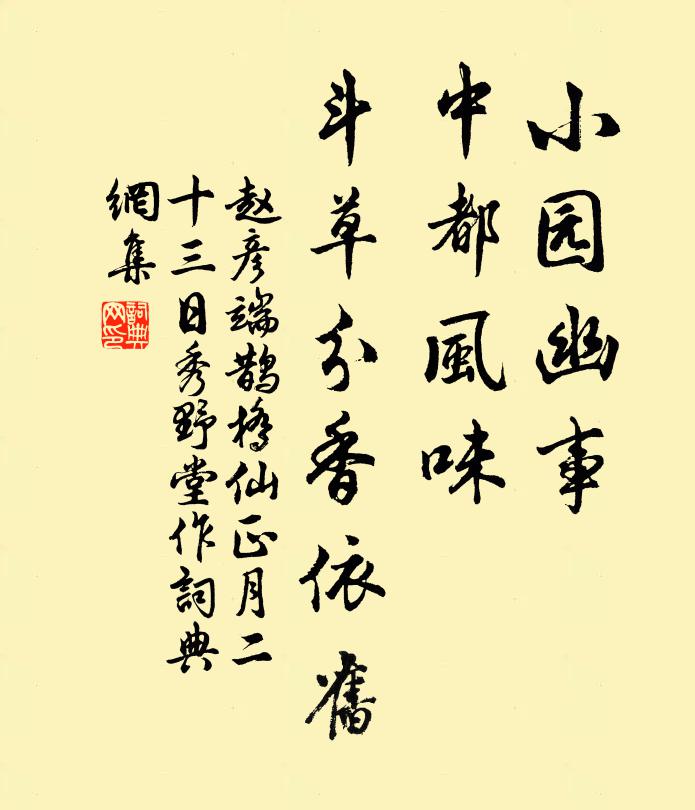 小园幽事
中都風味
斗草分香依舊
赵彦端鵲橋仙正月二
十三日秀野堂作詞典
網集
詞典
网印